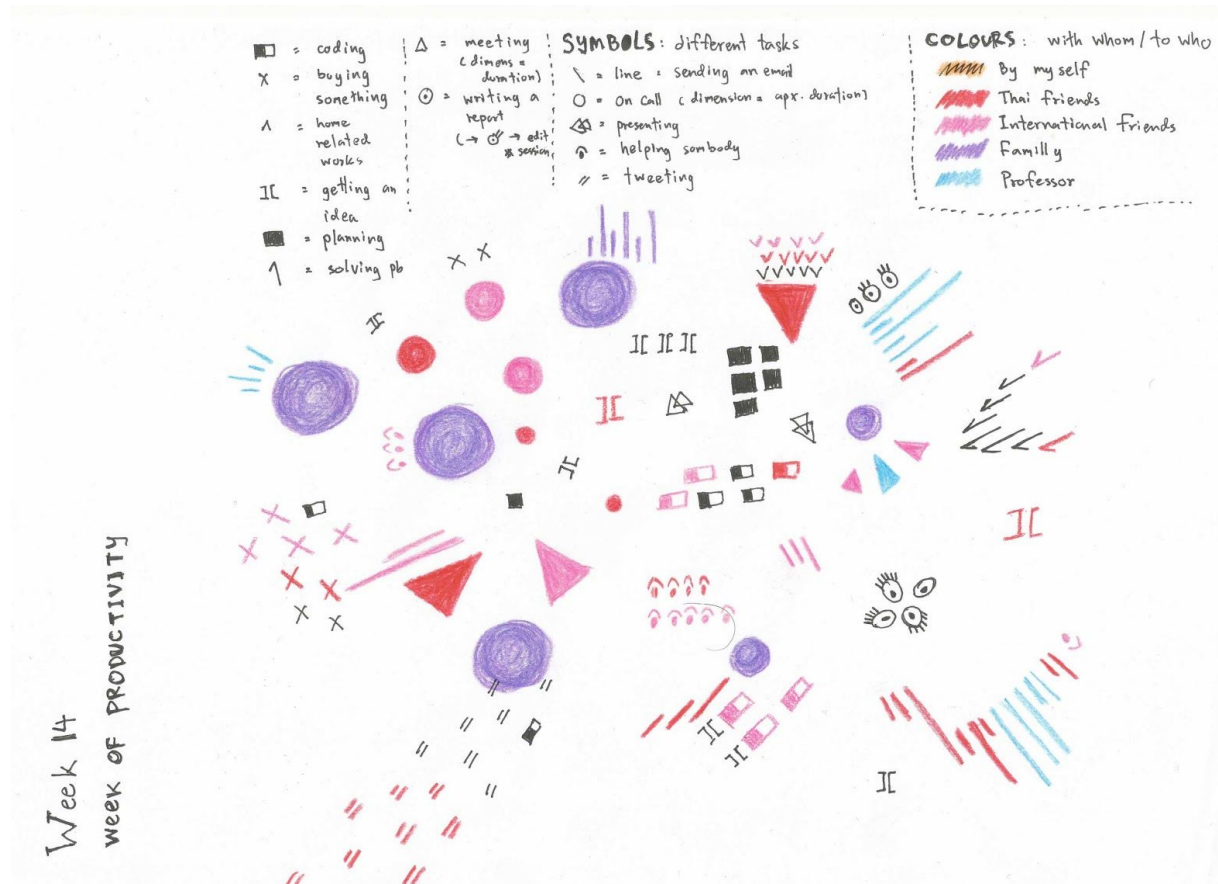 = coding
= buying
something
= home
related
works
= getting an
idea
= planning
= solving pb
= meeting
(dimens =
duration)
= writing a
report
(→ → edit
session
SYMBOLS: different tasks
= line = sending an email
= on call (dimension = apx. duration)
= presenting
= helping sombody
= tweeting
COLOURS: with whom / to who
By my self
Thai friends
International friends
Familly
Professor
Week 14
WEEK OF PRODUCTIVITY